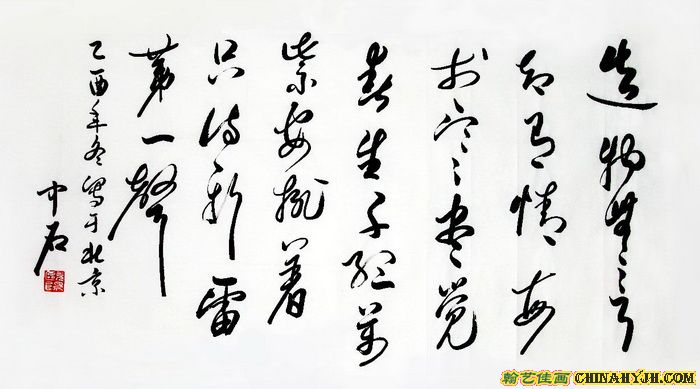 造物無言
却有情每
於寒盡覺
春生千紅萬
紫安排着
只待新雷
第一聲
乙酉年冬写于北京
中石
翰艺佳画 CHINAHYJH.COM